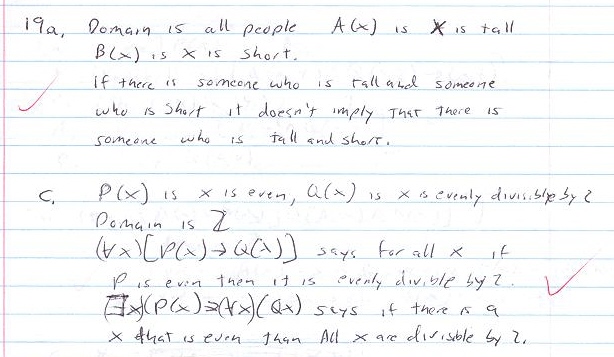 19a. Domain is all people A(x) is x is tall
B(x) is x is short.
if there is someone who is tall and someone
who is short it doesn't imply that there is
someone who is tall and short.
c. P(x) is x is even, Q(x) is x is evenly divisible by 2
Domain is Z
(∀x)[P(x)→Q(x)] says for all x if
P is even then it is evenly divible by 2.
(∃x)(P(x)⇒(∀x)(Qx) says if there is a
x that is even than All x are divisible by 2.